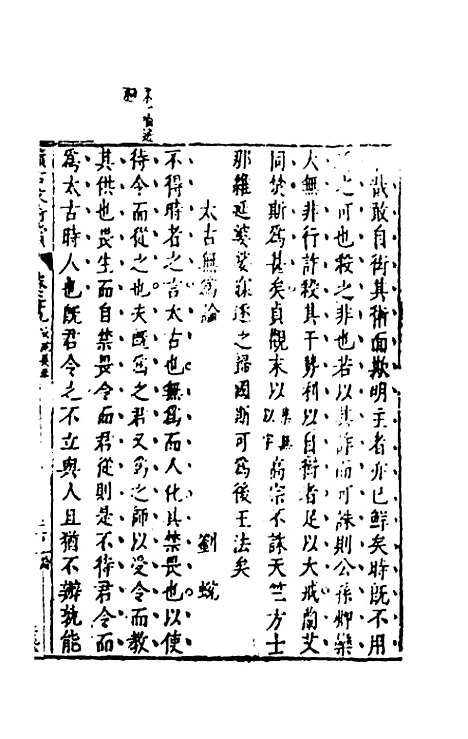 哉敢自衒其術面欺明主者亦已鮮矣時旣不用
之可也殺之非也若以其詐而可誅則公孫卿欒
大無非行詐殺其干勢利以自衒者足以大戒蘭艾
同焚斯爲甚矣貞觀末以高宗不誅天竺方士
那羅延婆娑寐逐之歸國斯可爲後王法矣
太古無爲論 劉蛻
不得時者之言太古也無爲而人化其禁畏也以使
待令而從之也夫旣爲之君又爲之師以受令而教
其供也畏生而自禁畏令而君從則是不待君令而
爲太古時人也旣君令之不立與人且猶不辦孰能